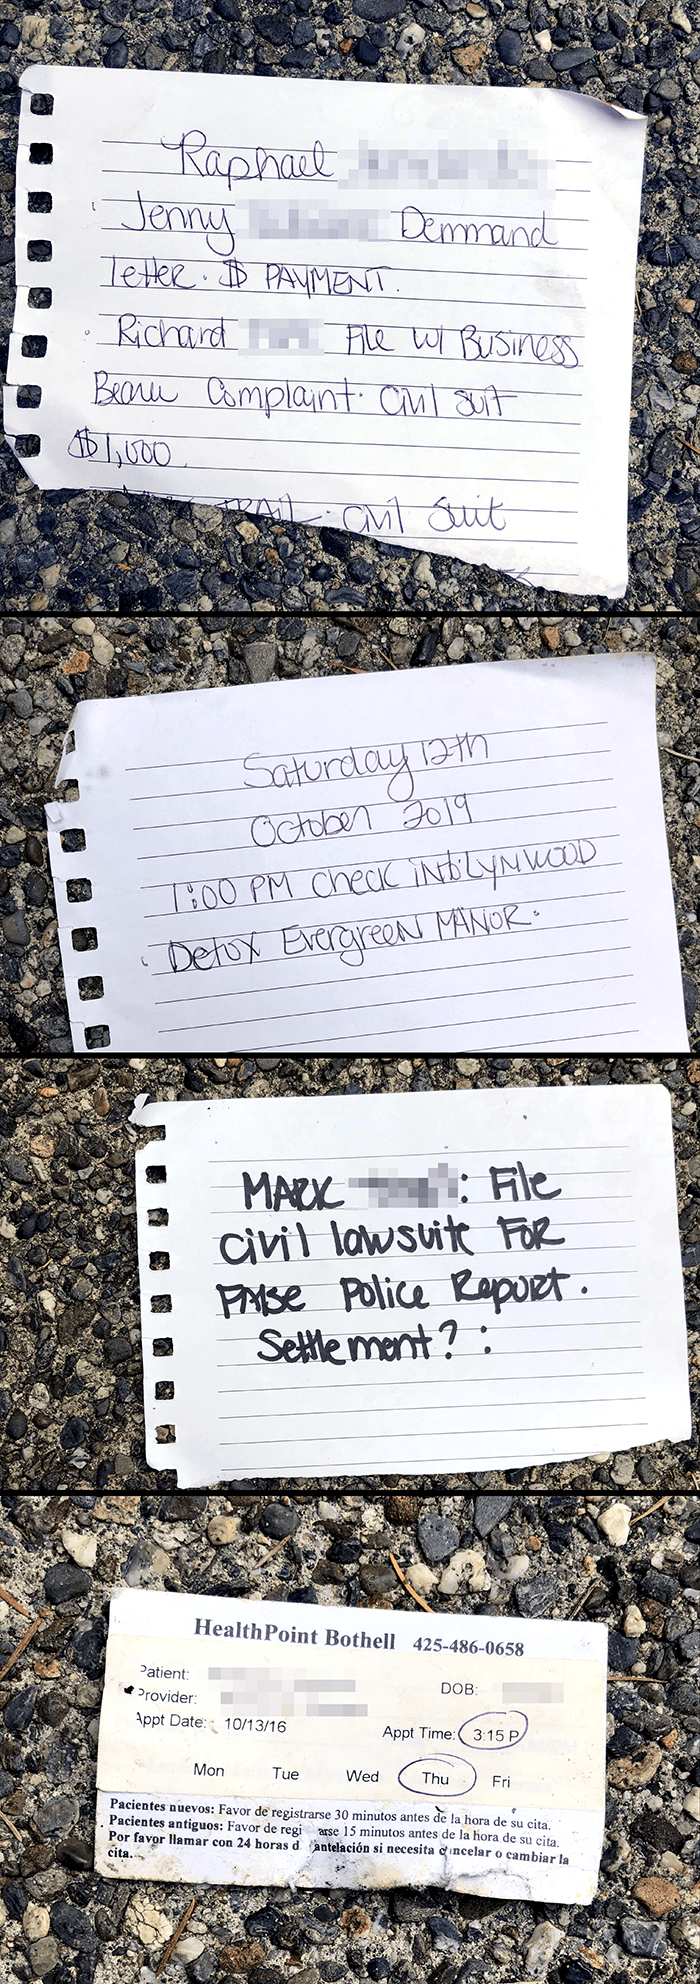 Raphael
Jenny Demmand
letter. $ PAYMENT.
Richard File w/ Business
Beauu Complaint. Civil suit
$1,000.
TRAIL. Civil Suit
Saturday 12th
October 2019
1:00 PM Check IN LYNWOOD
Detox Evergreen MANOR.
MARK : File
civil lawsuite FOR
FAlse Police Report.
Settlement? :
HealthPoint Bothell 425-486-0658
Patient:
DOB:
Provider:
Appt Date: 10/13/16
Appt Time: 3:15 P
Mon Tue Wed Thu Fri
Pacientes nuevos: Favor de registrarse 30 minutos antes de la hora de su cita.
Pacientes antiguos: Favor de regi arse 15 minutos antes de la hora de su cita.
Por favor llamar con 24 horas d antelación si necesita cancelar o cambiar la
cita.